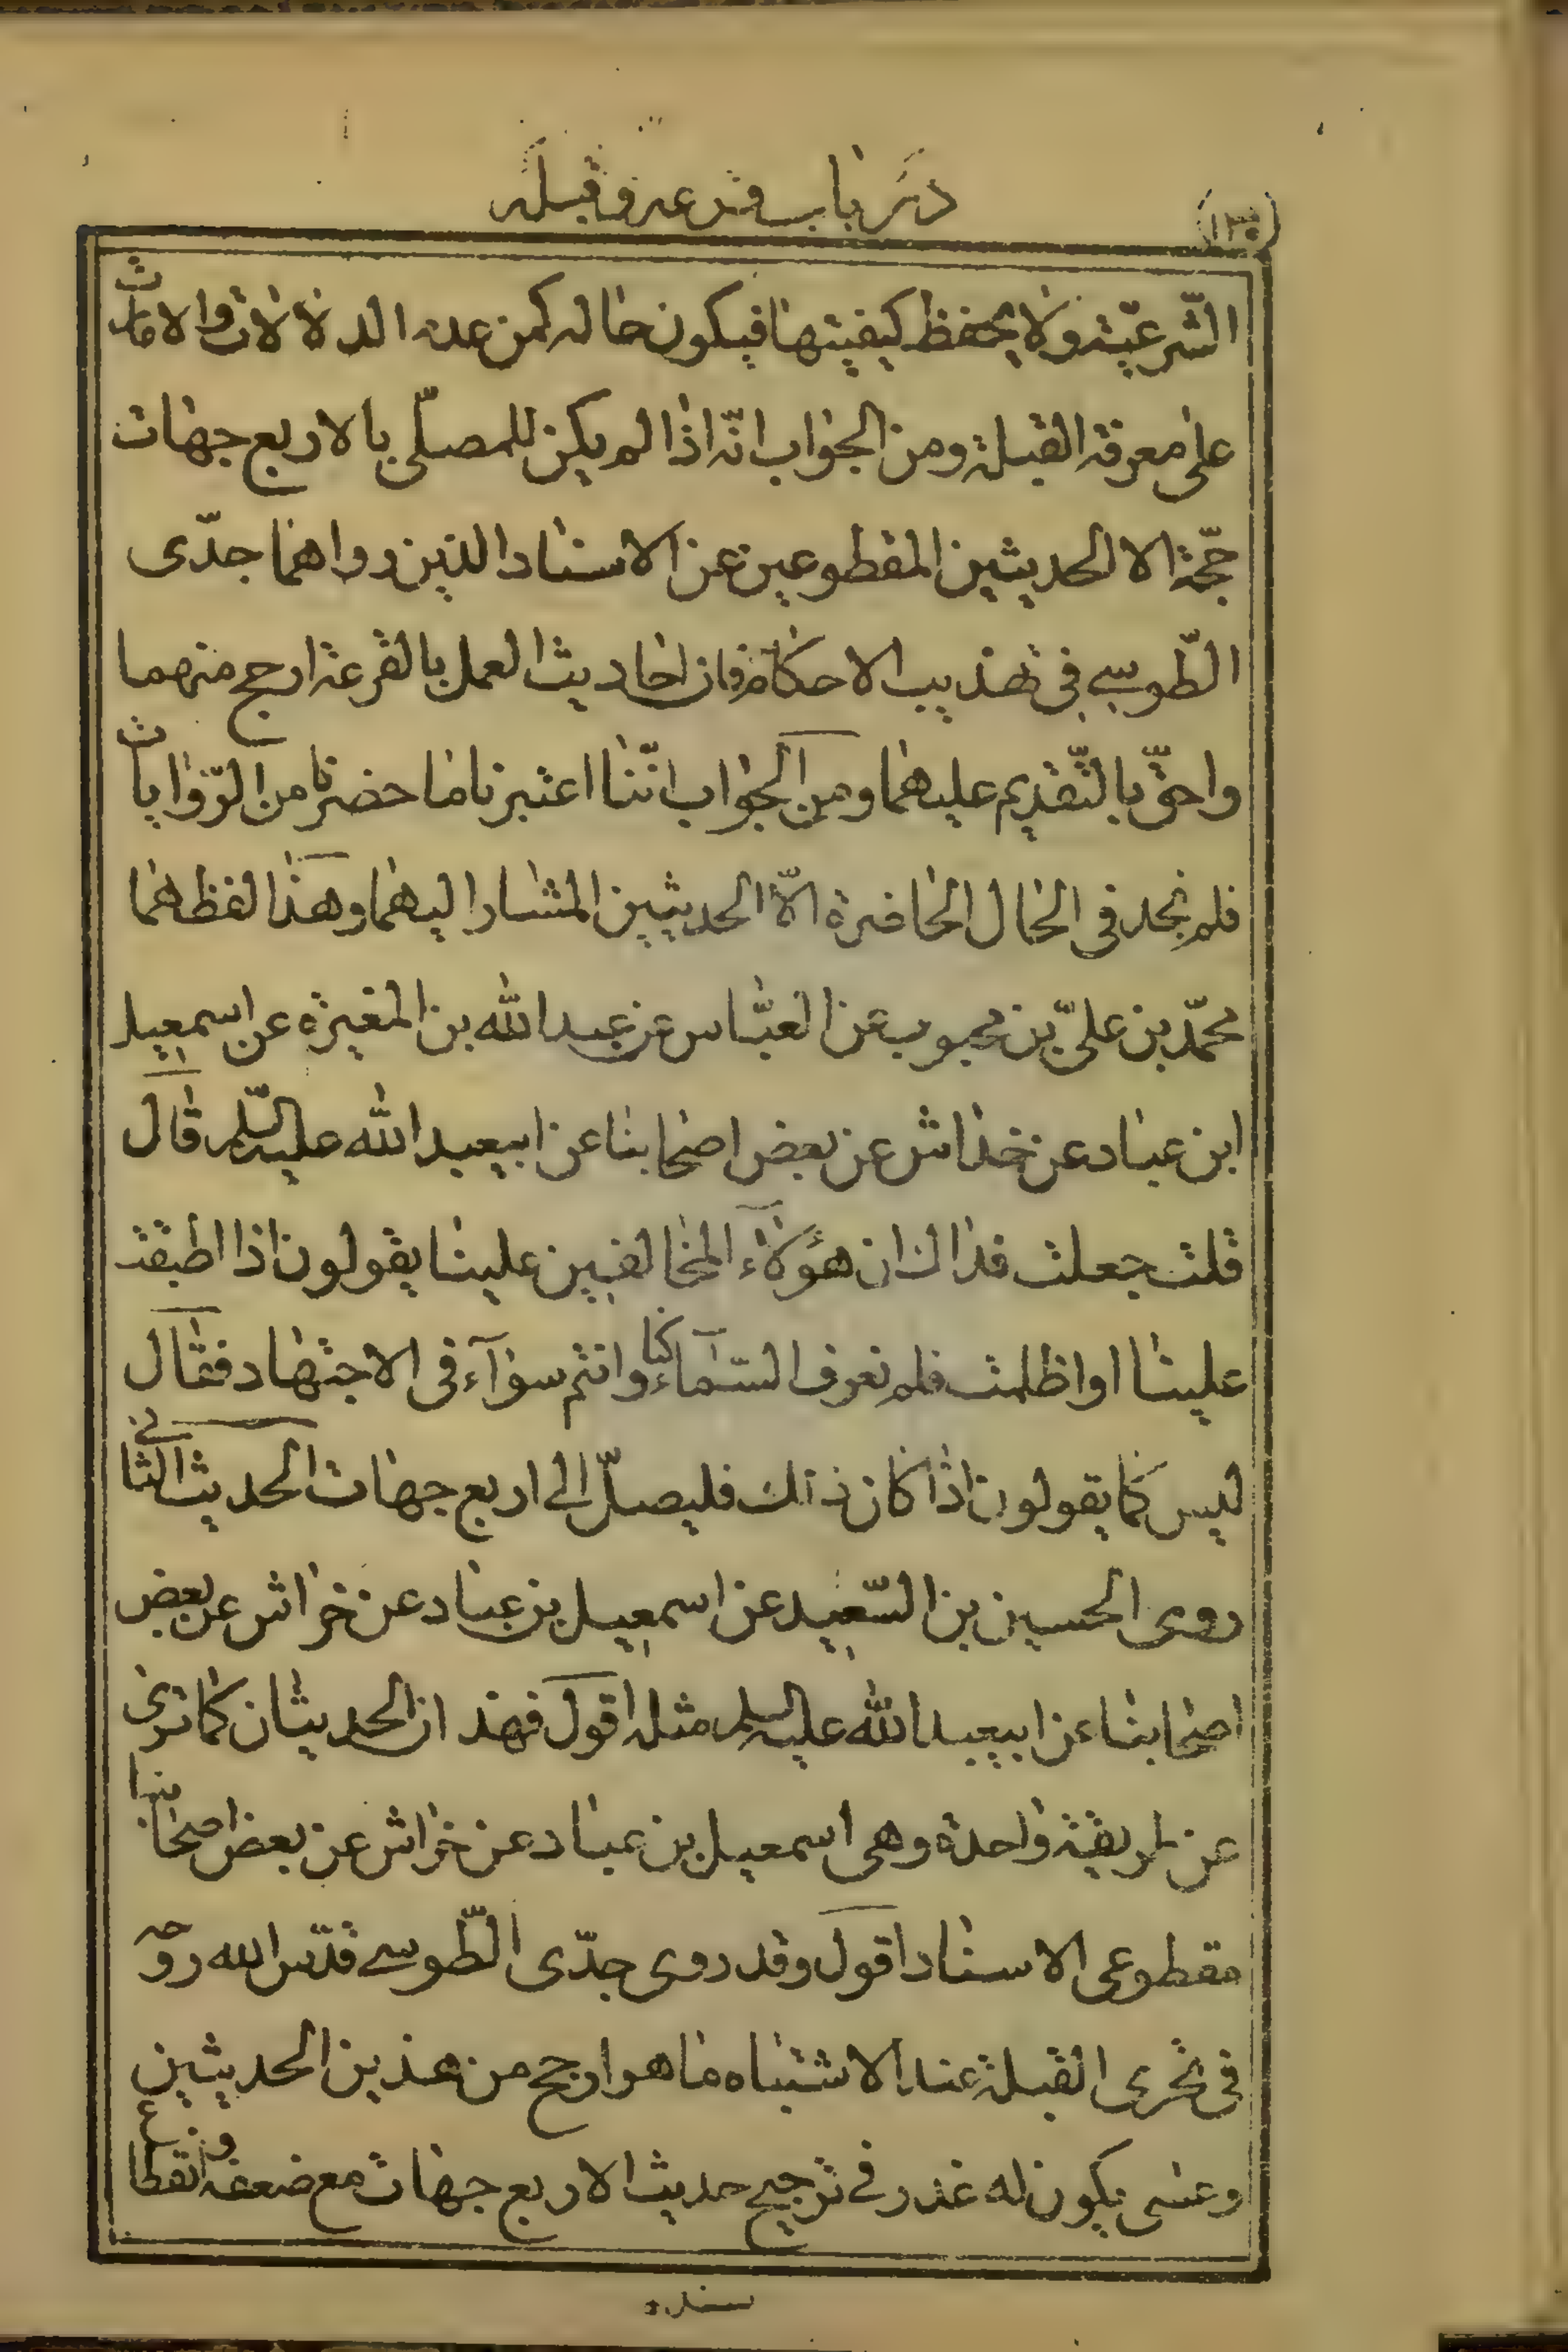 (١٣٠)
در باب قرعه و قبله
الشّرعيّة ولا يحفظ كيفيتها فيكون حاله كمن عدم الدلالات والامارات
على معرفة القبلة ومن الجواب انّه اذا لم يكن للمصلّى بالاربع جهات
حجّة الا الحديثين المقطوعين عن الاسناد الذين رواهما جدّى
الطّوسي في تهذيب الاحكام فان احاديث العمل بالقرعة ارجح منهما
واحقّ بالتّقديم عليهما ومن الجواب انّنا اعتبرنا ما حضرنا من الرّوايات
فلم نجد في الحال الحاضرة الّا الحديثين المشار اليهما وهذا لفظهما
محمّد بن علىّ بن محبوب عن العبّاس عن عبد الله بن المغيرة عن اسمعيل
ابن عباد عن خداش عن بعض اصحابنا عن ابيعبد الله عليه السّلم قال
قلت جعلت فداك ان هؤلاء المخالفين علينا يقولون اذا اطبقت
علينا او اظلمت فلم نعرف السّماء كنا وانتم سوآء في الاجتهاد فقال
ليس كما يقولون اذا كان ذلك فليصلّ الى اربع جهات الحديث الثاني
روى الحسين بن السّعيد عن اسمعيل بن عباد عن خراش عن بعض
اصحابنا عن ابيعبد الله عليه السلم مثله اقول فهذ ان الحديثان كما ترى
عن طريقة واحدة وهى اسمعيل بن عباد عن خراش عن بعض اصحابنا
مقطوعى الاسناد اقول وقد روى جدّى الطّوسي قدّس الله روحه
في تحرى القبلة عند الاشتباه ما هو ارجح من هذين الحديثين
وعسى يكون له عذر في ترجيح حديث الاربع جهات مع ضعفه وانقطاع
سنده